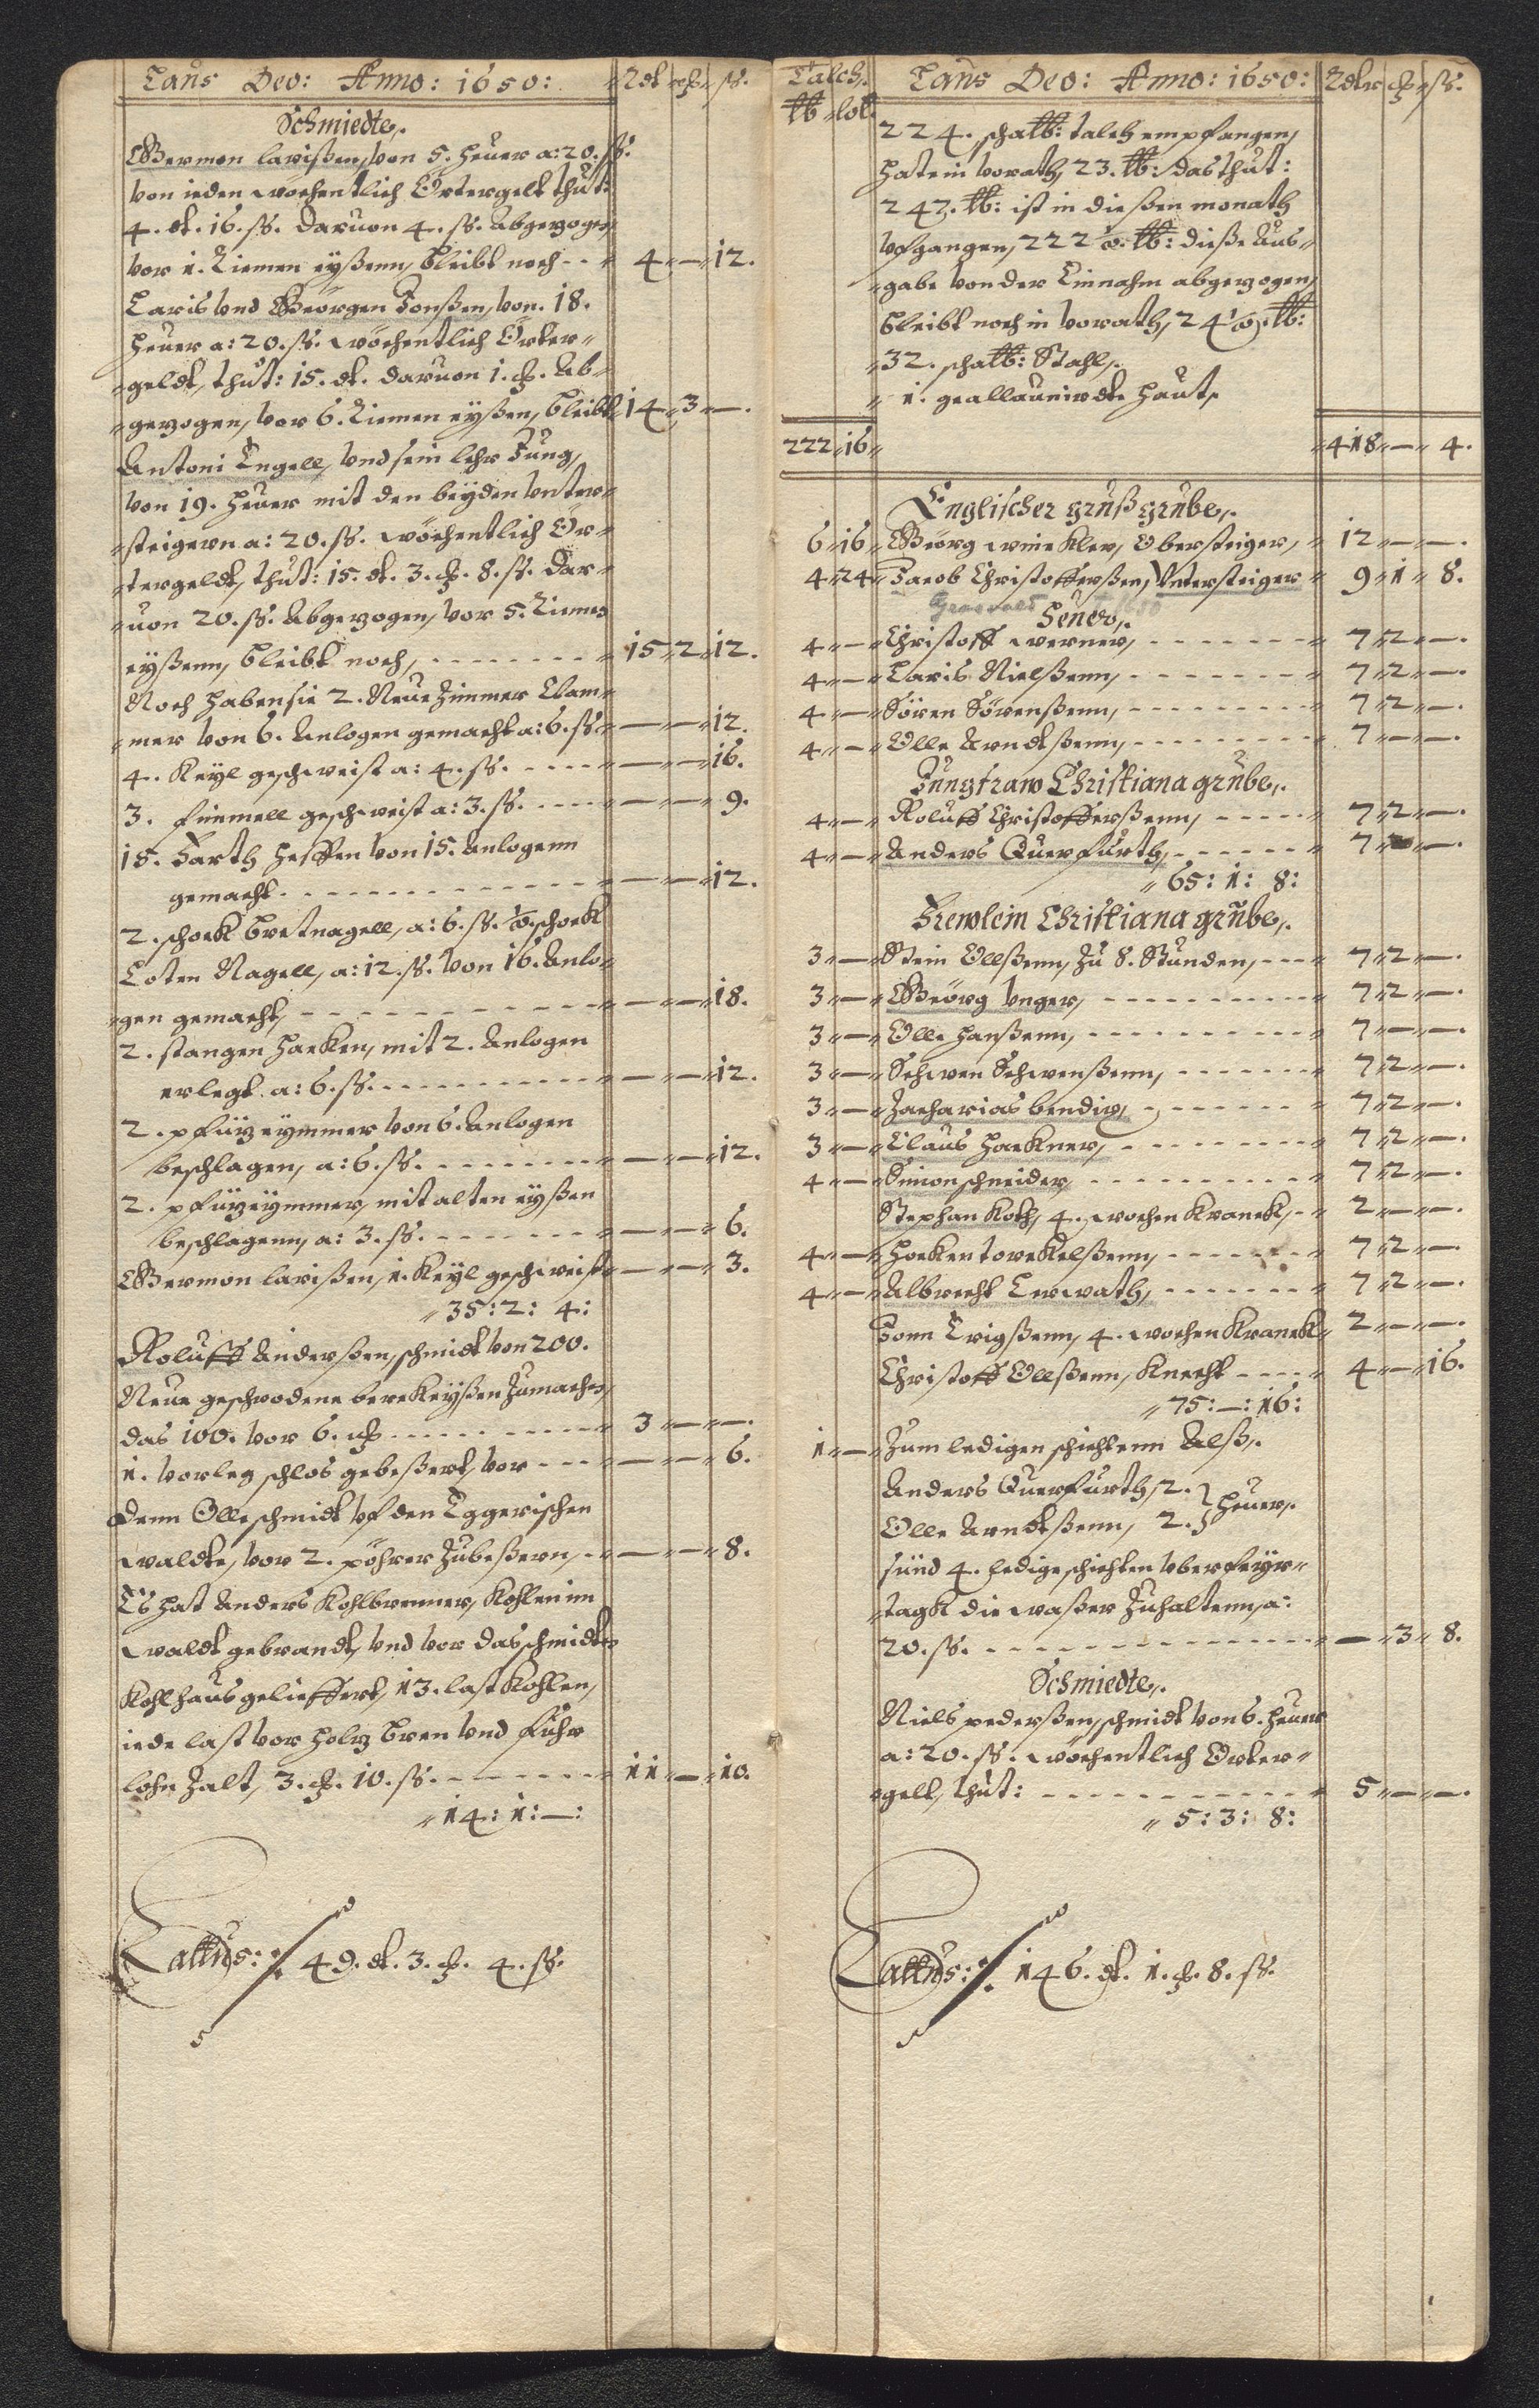 Laus Deo: Anno: 1650: Rdt ch ss.
Schmiedte,.
Germon larißen, von 5. heuer a: 20. ss.
von ieden wöchentlich Örtergelt thut:
4. dt. 16. ss. daruon 4. ss. Abgezogen,
vor 1. Riemen eyßenn, bleibt noch - - 4 — 12.
Laris vnd Geörgen Jonßen, von. 18.
heuer a: 20. ss. wöchentlich Örter
geldt, thut: 15. dt. daruon 1. ch. Ab
gezogen, vor 6. Riemen eyßen, bleibt 14 3 —.
Antoni Engell, vnd sein lehr Jung,
von 19. heuer mit den beyden vnter
steigern a: 20. ss. wöchentlich Ör
tergeldt, thut: 15. dt. 3. ch. 8. ss. dar
uon 20. ss. Abgezogen, vor 5. Riemen
eyßenn, bleibt noch, - - - 15 2 12.
Noch haben sie 2. Neue Zimmer Clam
mer von 6. Anlogen gemacht a: 6. ss — — 12.
4. Keyl geschweist a: 4. ss. - - - — — 16.
3. fimmell geschweist a: 3. ss. - - - — — 9.
18. Farth heffen von 15. Anlogenn
gemacht - - - — — 12.
2. schock bretnagell, a: 6. ss. ½. schock
Loten Nagell, a: 12. ss. von 16. Anlo
gen gemacht, - - - — — 18.
2. stangen hacken, mit 2. Anlogen
erlegt a: 6. ss. - - - — — 12.
2. pfützeymmer von 6. Anlogen
beschlagen, a: 6. ss. - - - — — 12.
2. pfützeymmer, mit alten eyßen
beschlagenn, a: 3. ss. - - - — — 6.
Germon larißen, 1. Keyl geschweist — — 3.
35: 2: 4:
Roluff Anderßen, schmidt von 200.
Neue geschrodene berckeyßen Zumachen,
das 100. vor 6. ch - - - 3 — —.
1. vorleg schlos gebeßert, vor - - - — — 6.
Denn Olle schmidt vf den Eggerischen
waldte, vor 2. pöhrer Zubeßern, - — — 8.
Es hat Anders Kohlbrenner, Kohlen im
waldt gebrandt, vnd vor das schmidten
Kohlhaus gelieffert, 13. last Kohlen,
iede last vor holtz bren vnd führ
lohn Zalt, 3. ch. 10. ss. - - - 11 — 10.
14: 1: —:
Lattus: ∕. 49. dt. 3. ch. 4. ss.
Talch. Laus Deo: Anno: 1650: Rdtr ch ss.
lb lot.
224. scha lb: talch empfangen,
hatein vorath, 23. lb: das thut:
247. lb: ist in dießen monath
vfgangen, 222 ½. lb: dieße Aus
gabe von der Einnahm abgezogen,
bleibt noch in vorath, 24 ½. lb:
32. scha lb: Stahl,.
1. geallaunirdte haut,.
222 16 418 — 4.
Englischer gruß grube,.
6 16 Geörg winckler, Obersteiger, 12 — —.
4 24 Jacob Christofferßen, Vntersteiger 9 1 8.
Heuer,.
4 — Christoff werner, - - - 7 2 —.
4 — Laris Nielßenn, - - - 7 2 —.
4 — Sören Sörenßenn, - - - 7 2 —.
4 — Olle Arndtßenn, - - - 7 — —.
Jungfraw Christiana grube,.
4 — Roluff Christofferßenn, - - - 7 2 —.
4 — Anders Querfurth, - - - 7 — —.
65: 1: 8:
Frewlein Christiana grube,.
3 — Stein Ollßenn, Zu 8. Stunden, - - - 7 2 —.
3 — Geörg vnger, - - - 7 2 —.
3 — Olle hanßenn, - - - 7 — —.
3 — Schwen Schwenßenn, - - - 7 2 —.
3 — Zacharias bendix, - - - 7 2 —.
3 — Claus hackner, - - - 7 2 —.
4 — Simon schneider, - - - 7 2 —.
Stephan Koth, 4. wochen Kranck, - - 2 — —.
4 — hocken torckelßenn, - - - 7 2 —.
4 — Albrecht Lerwath, - - - 7 2 —.
Jonn Erigßenn, 4. wochen Kranck 2 — —.
Christoff Ollßenn, Knecht - - - 4 — 16.
75: —: 16:
1 — Zum ledigen schichtenn Alß,.
Anders Querfurth, 2. } heuer,.
Olle Arndtßenn, 2.
sünd 4. ledige schichten vber feyr
tagk die waßer Zuhaltenn, a:
20. ss. - - - — 3 8.
Schmiedte,.
Niels pederßen, schmidt von 6. heuer
a: 20. ss. wöchentlich Örter
gelt, thut: - - - 5 — —.
5: 3: 8:
Lattus: ∕. 146. dt. 1. ch. 8. ss.